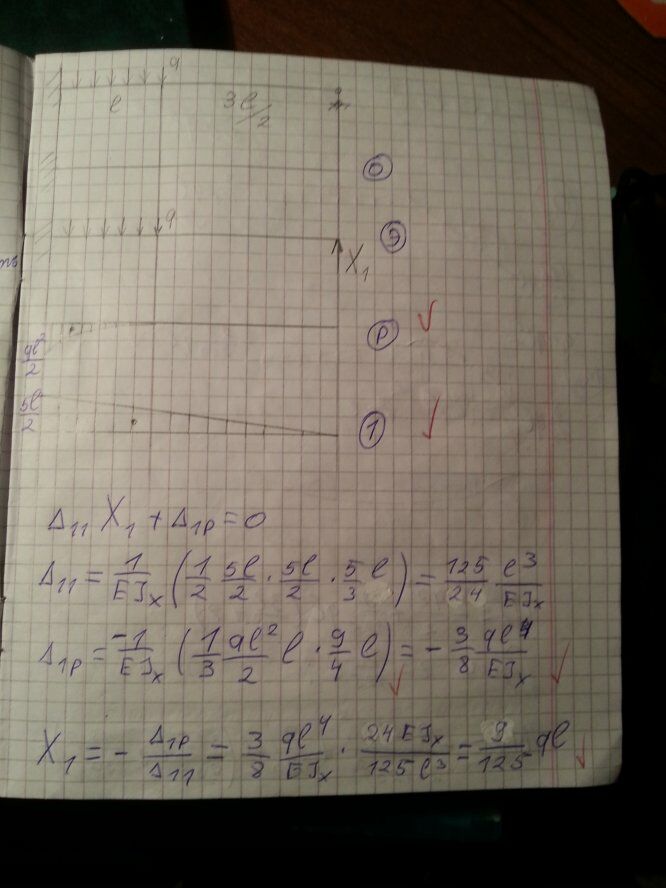 q
l 3l/2
О
q
Э
X₁
ql²/2
P
5l/2
1
Δ₁₁ X₁ + Δ₁P = 0
Δ₁₁ = 1/EJₓ (1/2 5l/2 · 5l/2 · 5/3 l) = 125/24 l³/EJₓ
Δ₁P = -1/EJₓ (1/3 ql²/2 l · 9/4 l) = - 3/8 ql⁴/EJₓ
X₁ = - Δ₁P/Δ₁₁ = 3/8 ql⁴/EJₓ · 24EJₓ/125l³ = 9/125 ql